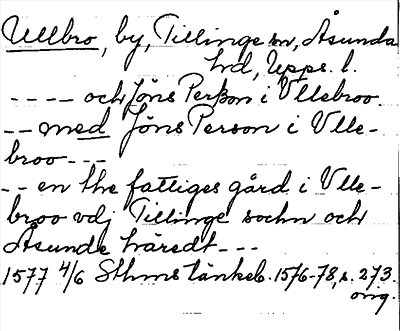 Ullbro, by, Tillinge sn, Åsunda
hrd, Upps. l.
---- och Jöns Perßon i Ullebroo.
-- med Jöns Person i Ulle-
broo ---
-- en the fattiges gård i Ulle-
broo vdj Tillinge sochn och
Åsunde häredt ---
1577 4/6 Sthms tänkeb. 1576-78, s. 273.
orig.